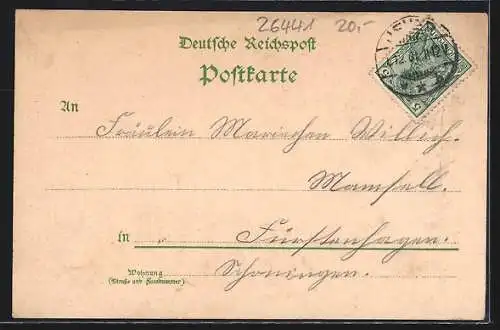 26441 20.-
Deutsche Reichspost
Postkarte
An Fräulein Mariechen Willich.
Mamsell.
in Fürstenhagen.
Wohnung Schoningen.
(Straße und Hausnummer)